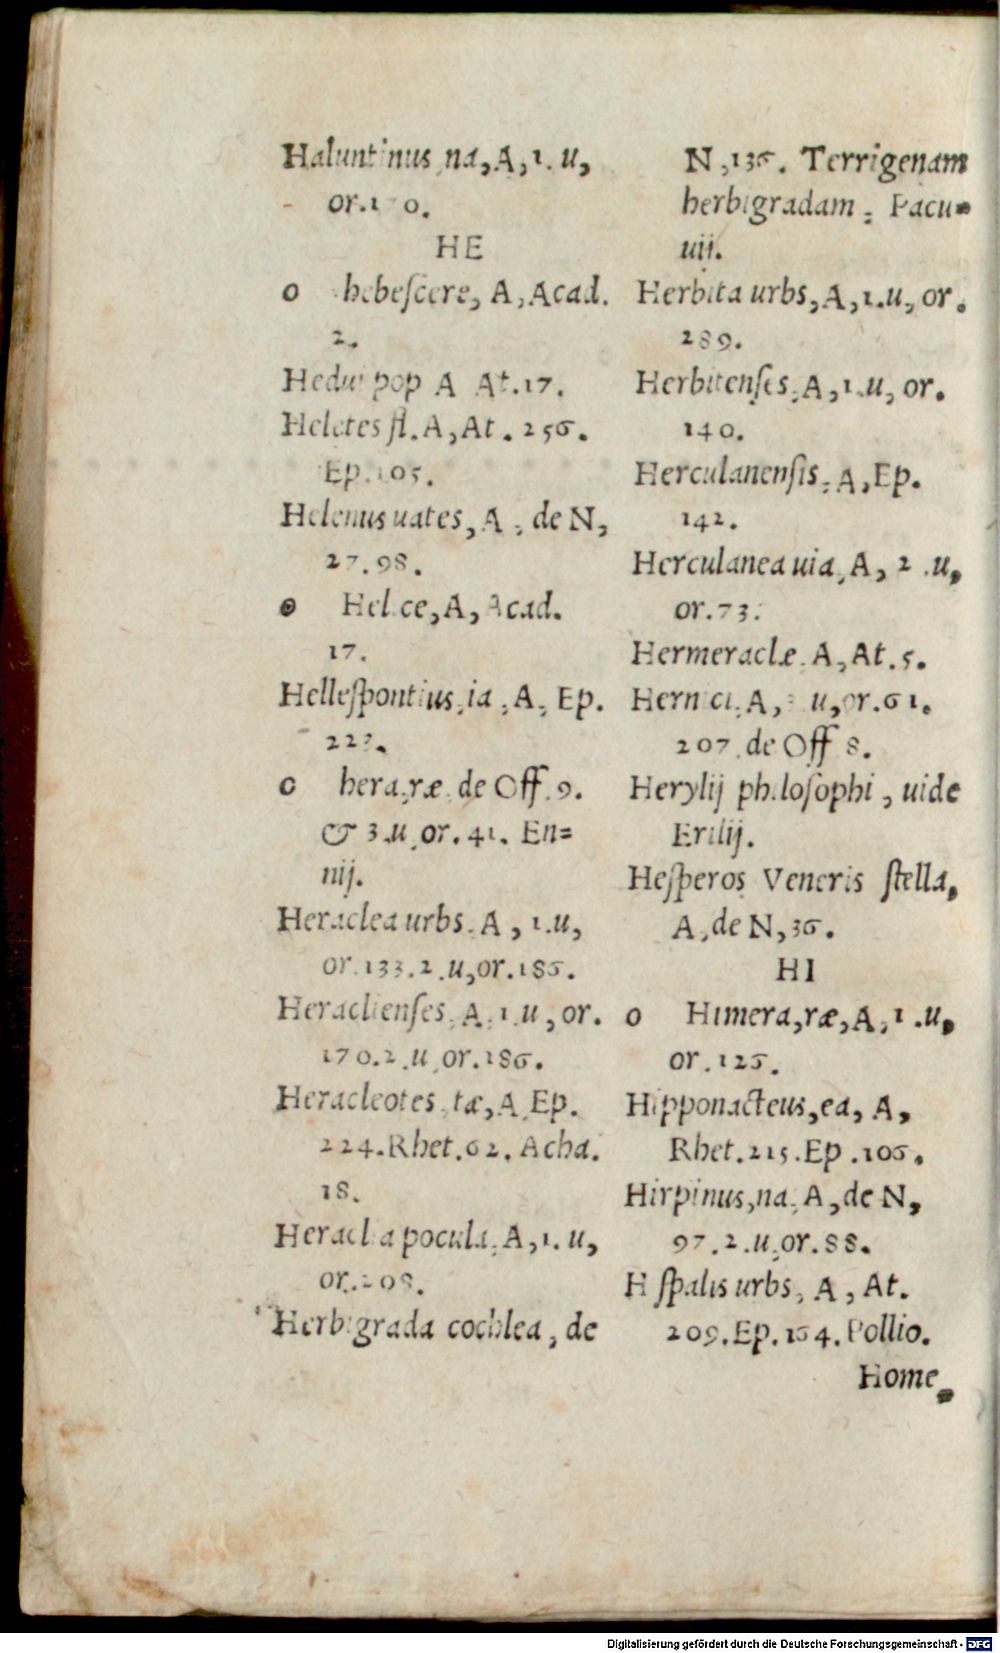 Haluntinus na, A, 1. u,
or.
HE
o hebeſcere, A, Acad.
2.
Hedui pop A At.17.
Heletes fl. A, At. 256.
Ep.105.
Helenus uates, A, de N,
27.98.
o Helice, A, Acad.
17.
Helleſpontius, ia, A, Ep.
o hera, ræ de Off. 9.
& 3.u, or. 41. En=
nij.
Heraclea urbs. A, 1.u,
or.133.2.u, or.186.
Heraclienſes, A, 1.u, or.
170.2.u, or.186.
Heracleotes tæ, A, Ep.
224.Rhet.62. Acha.
18.
Heraclia pocula, A, 1. u,
or.208.
Herbigrada cochlea, de
N, 136. Terrigenam
herbigradam, Pacu=
uij.
Herbita urbs, A, 1.u, or.
289.
Herbitenſes, A, 1.u, or.
140.
Herculanenſis, A, Ep.
142.
Herculanea uia, A, 2.u,
or.73.
Hermeraclæ. A, At.5.
Hernici, A, u, or.61.
207 de Off 8.
Herylij philoſophi, uide
Erilij.
Heſperos Veneris ſtella,
A, de N, 36.
HI
o Himera, ræ, A, 1.u,
or.125.
Hipponacteus, ea, A,
Rhet.215.Ep.106.
Hirpinus, na, A, de N,
97.2.u, or.88.
Hiſpalis urbs, A, At.
209.Ep.164.Pollio.
Home
Digitalisierung gefördert durch die Deutsche Forschungsgemeinschaft - DFG